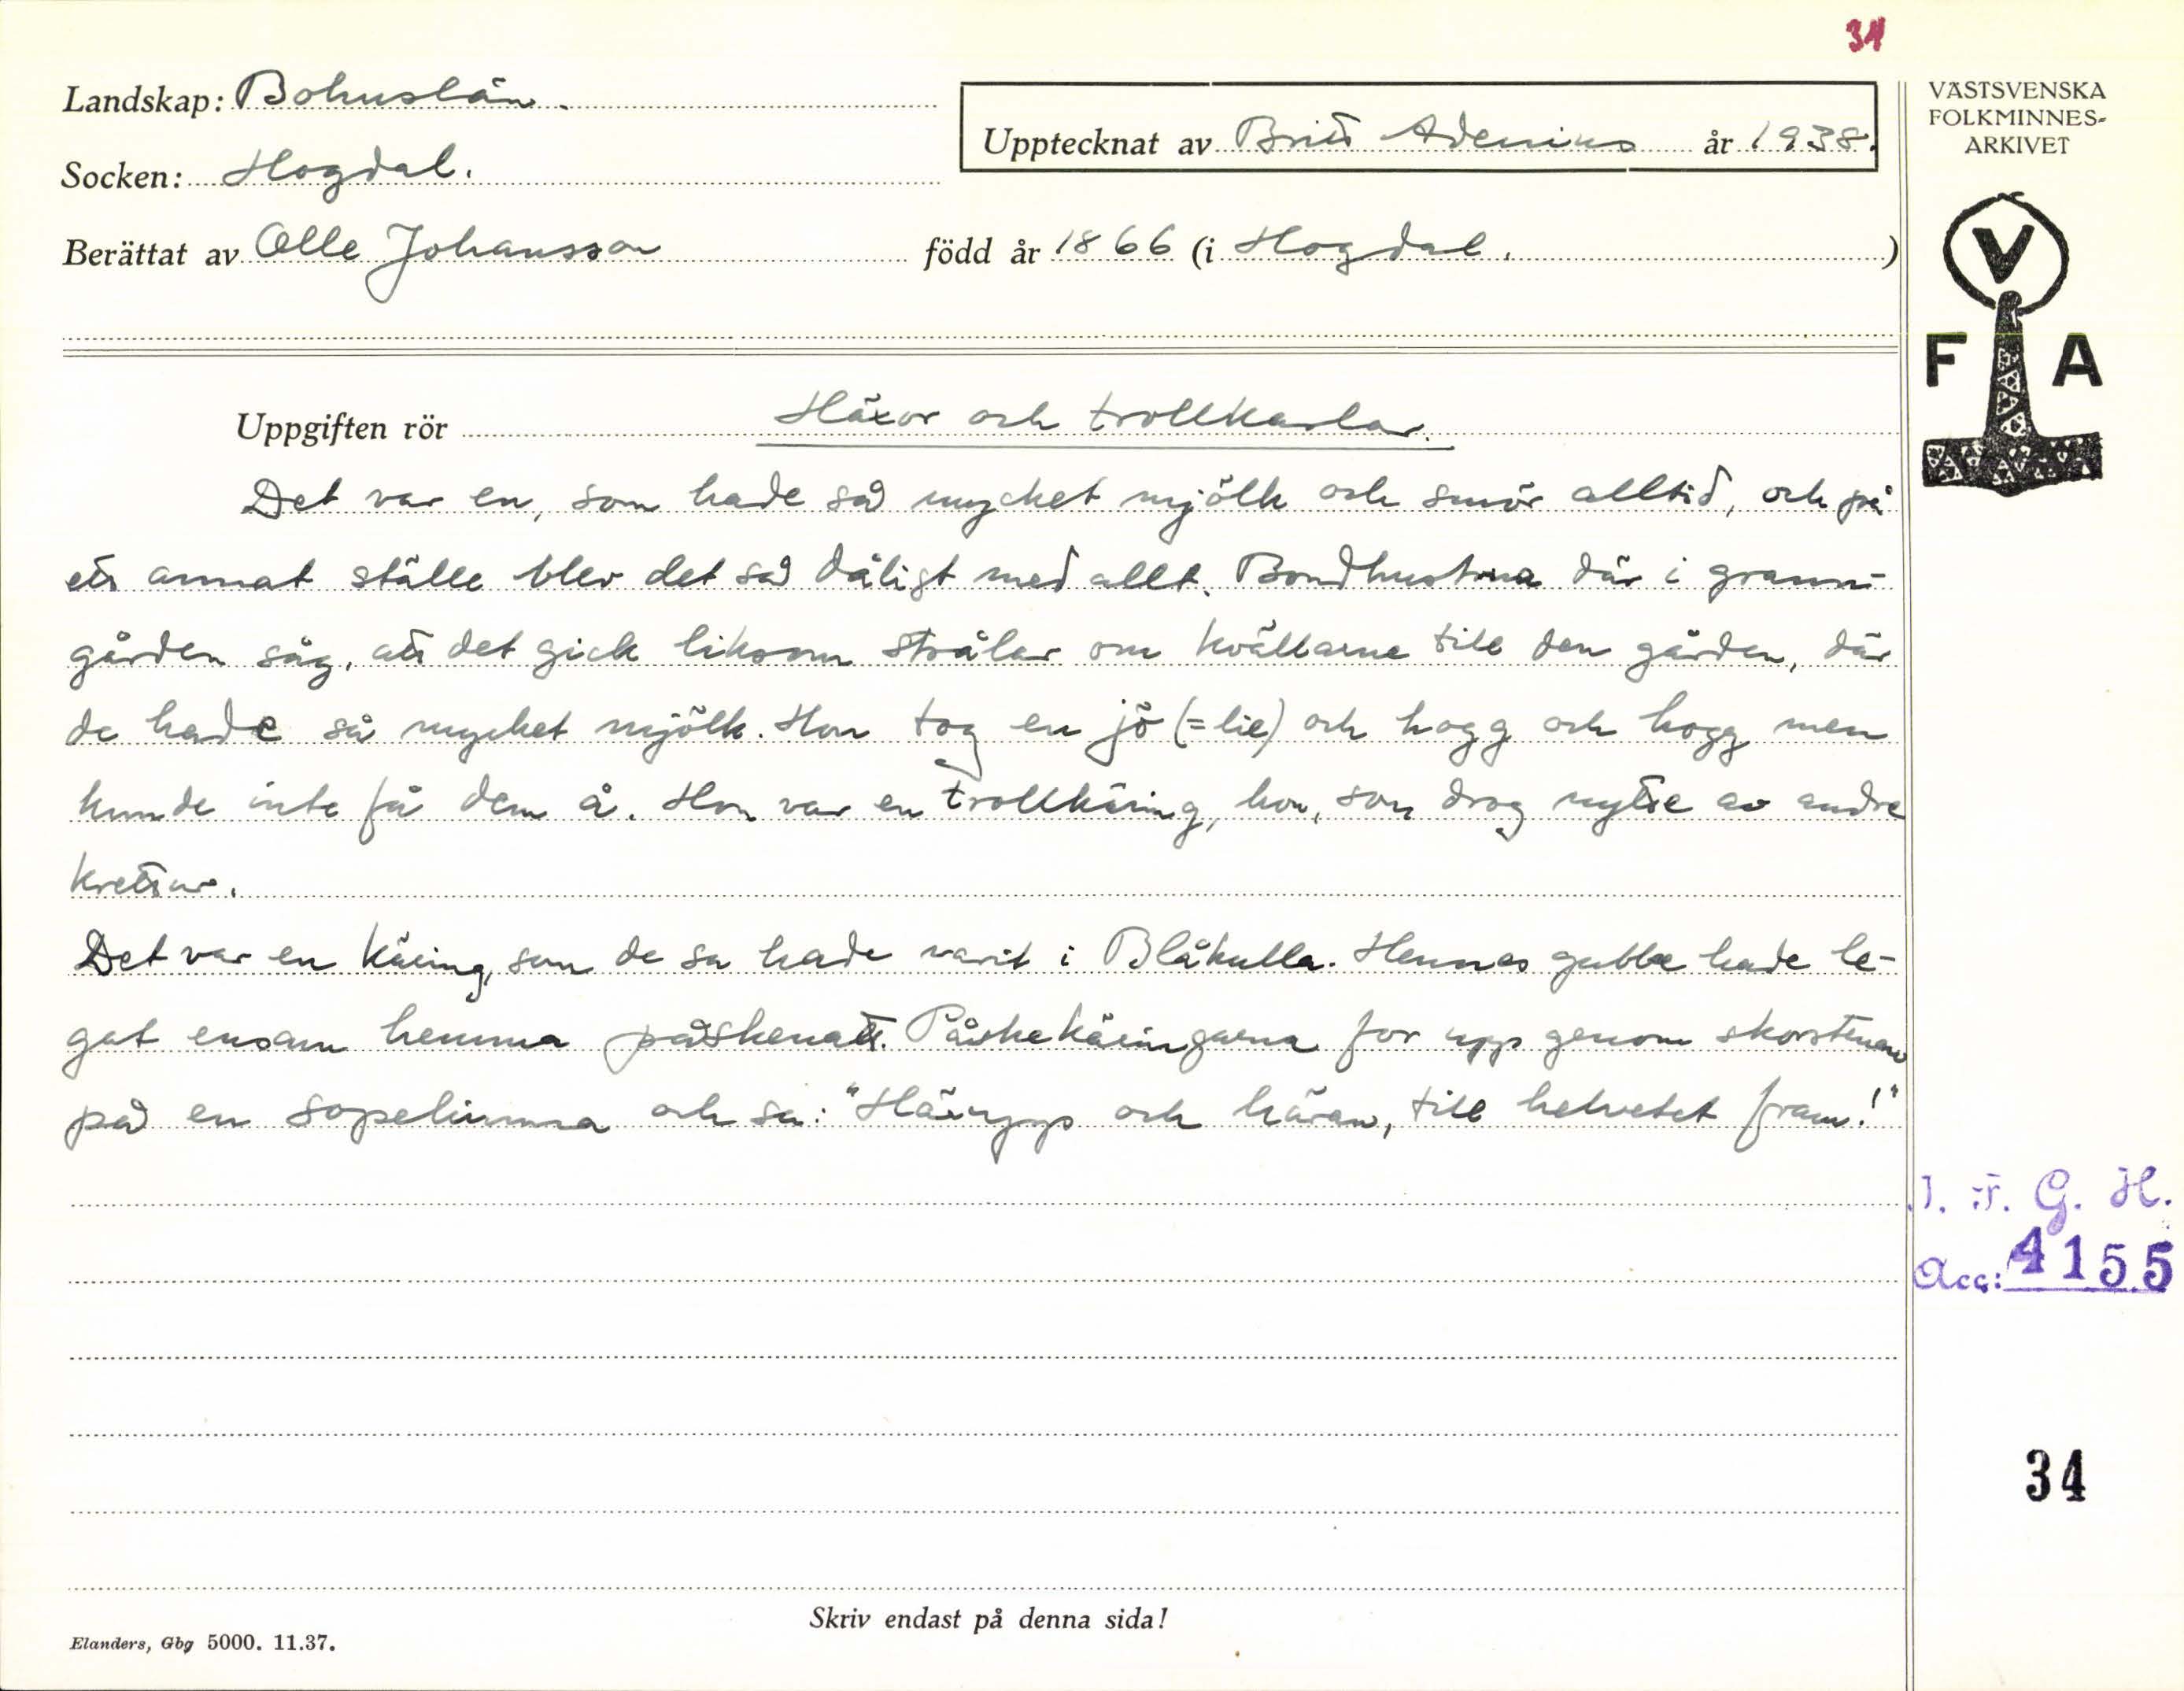 34
Landskap: Bohuslän.
Upptecknat av Britt Adenius år 1938.
Socken: Hogdal.
Berättat av Olle Johansson född år 1866 (i Hogdal.)
VÄSTSVENSKA
FOLKMINNES-
ARKIVET
V
F A
Uppgiften rör Häxor och trollkarlar.
Det var en, som hade så mycket mjölk och smör alltid, och på
ett annat ställe blev det så dåligt med allt. Bondhustrua där i grann-
gården såg, att det gick liksom strålar om kvällarne till den gården, där
de hade så mycket mjölk. Hon tog en jö (=lie) och hogg och hogg men
kunde inte få dem å. Hon var en trollkäring, hon, som drog nytte av andre
kretur.
Det var en käring, som de sa hade varit i Blåkulla. Hennes gubbe hade le-
gat ensam hemma påskenatt. Påskekäringarna for upp genom skorstenen
på en sopelimma och sa: "Häropp och häran, till helvetet fram!"
I. F. G. H.
Acc: 4155
34
Skriv endast på denna sida!
Elanders, Gbg 5000. 11.37.